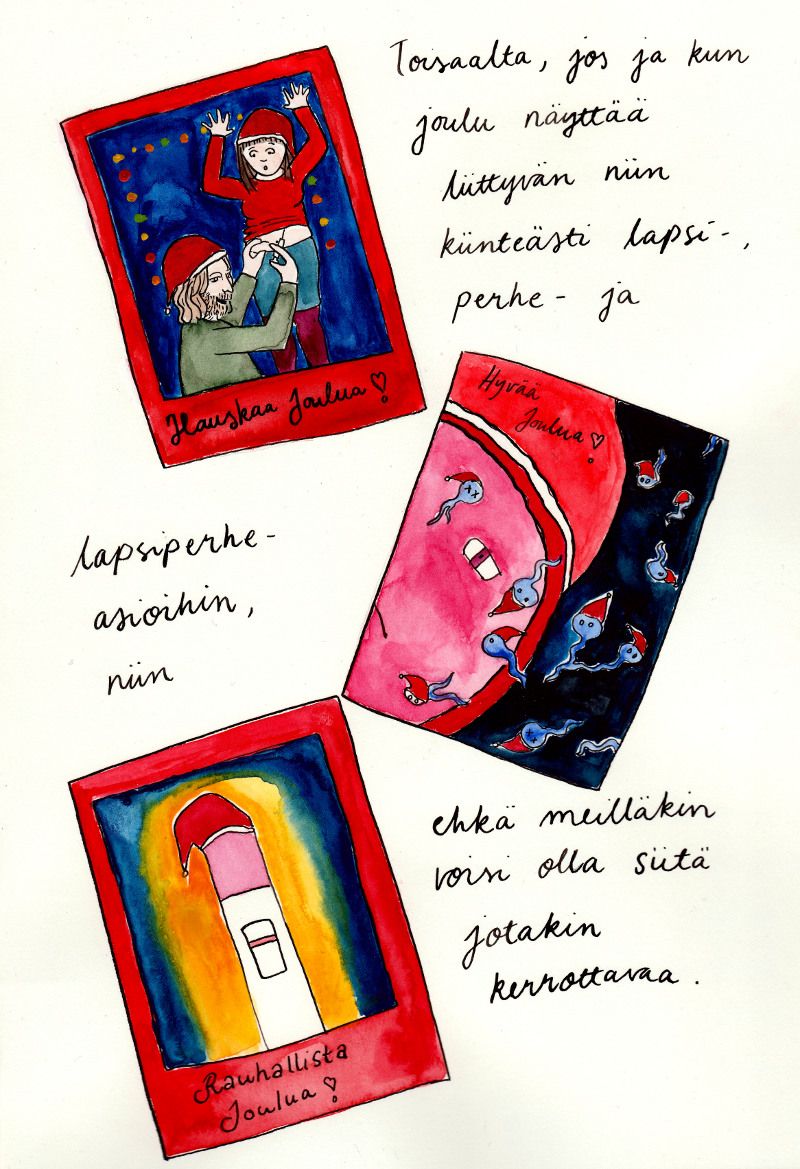 Toisaalta, jos ja kun
joulu näyttää
liittyvän niin
kiinteästi lapsi-,
perhe- ja
Hauskaa Joulua!
Hyvää
Joulua!
lapsiperhe-
asioihin,
niin
ehkä meilläkin
voisi olla siitä
jotakin
kerrottavaa.
Rauhallista
Joulua!